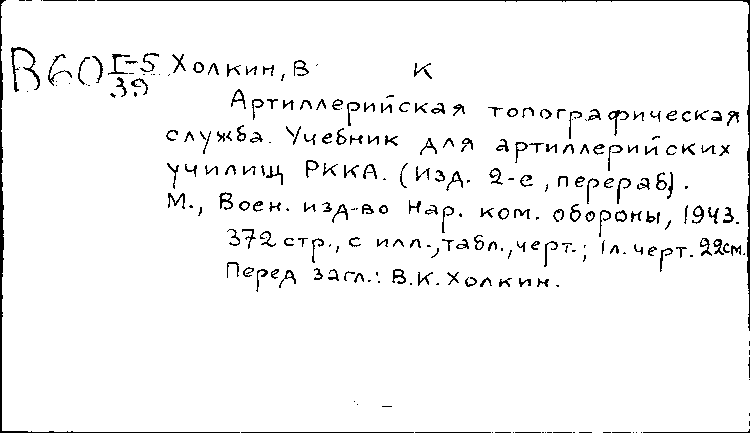 В60 I-5/39 Холкин, В К
Артиллерийская топографическая
служба. Учебник для артиллерийских
училищ РККА. (Изд. 2-е, перераб).
М., Воен. изд-во Нар. ком. обороны, 1943.
372 стр., с илл., табл., черт.; 1 л. черт. 22см.
Перед загл.: В.К. Холкин.